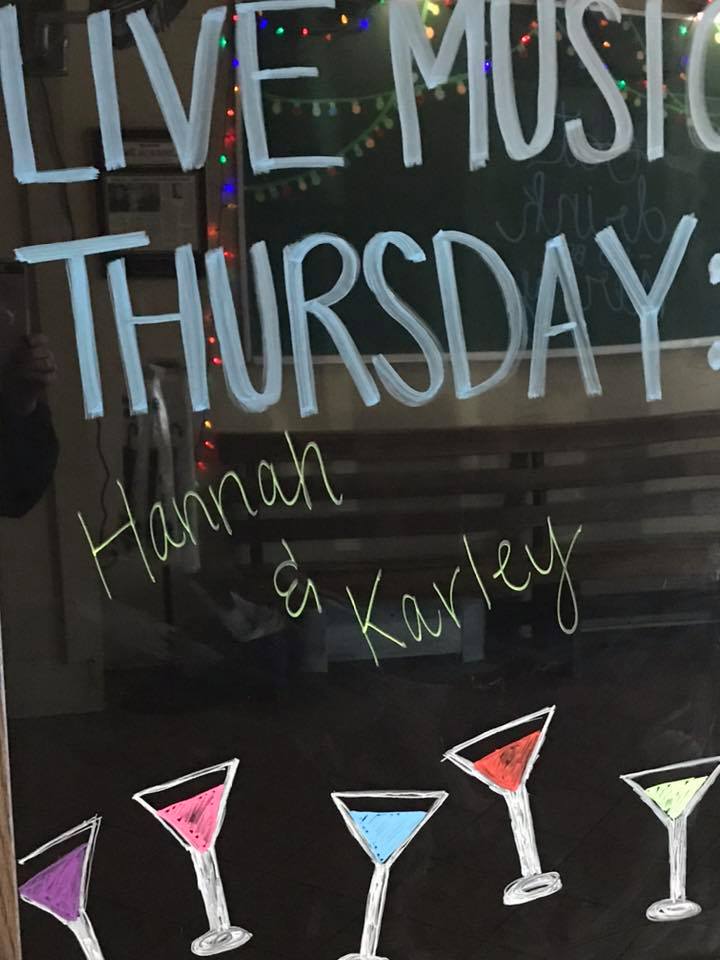 LIVE MUSIC
THURSDAY:
Hannah
&
Karley
drink